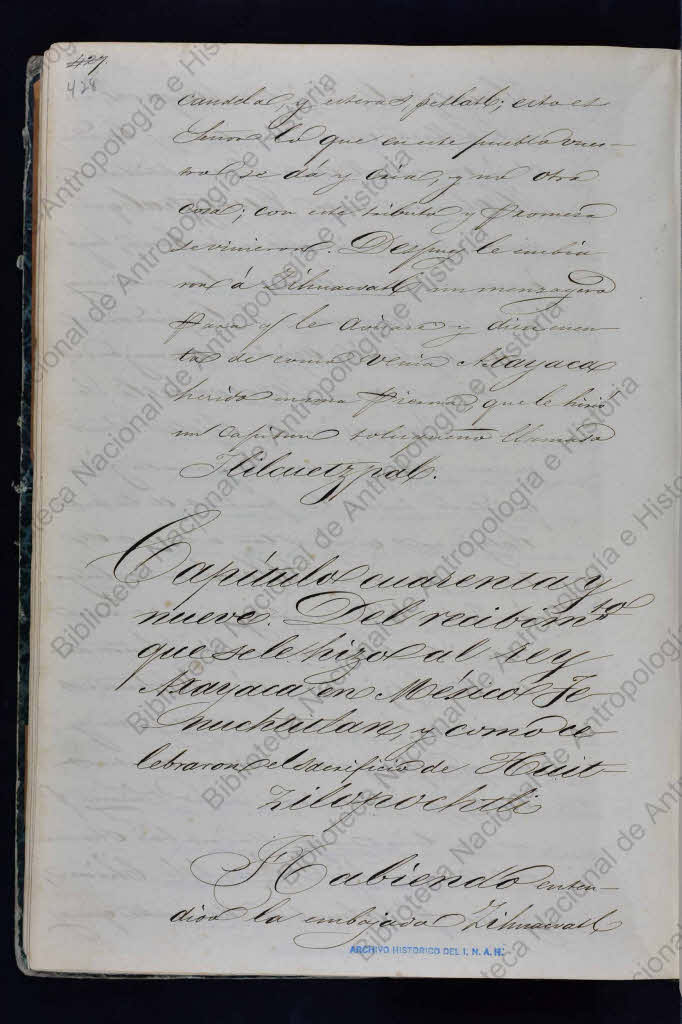 427.
428
candela y esteras, petlatl; esto es
Señor lo que en este pueblo vues-
tro se dá y cria, y no otra
cosa; con este tributo y promesa
se vinieron. Despues le embia
ron á Zihuacoatl un mensagero
para q. le avisase y diese cuen-
ta de como venia Axayaca
herido en una pierna, que le hirió
un capitan tolucano llamado
Tlilcuetzpal.
Capítulo cuarenta y
nueve. Del recibim.to
que se le hizo al rey
Axayaca en México Te
nuchtitlan, y como ce
lebraron el sacrificio de Huit-
zilopochtli
Habiendo enten-
dido la embajada Zihuacoatl
ARCHIVO HISTORICO DEL I. N. A. H.
Biblioteca Nacional de Antropología e Historia